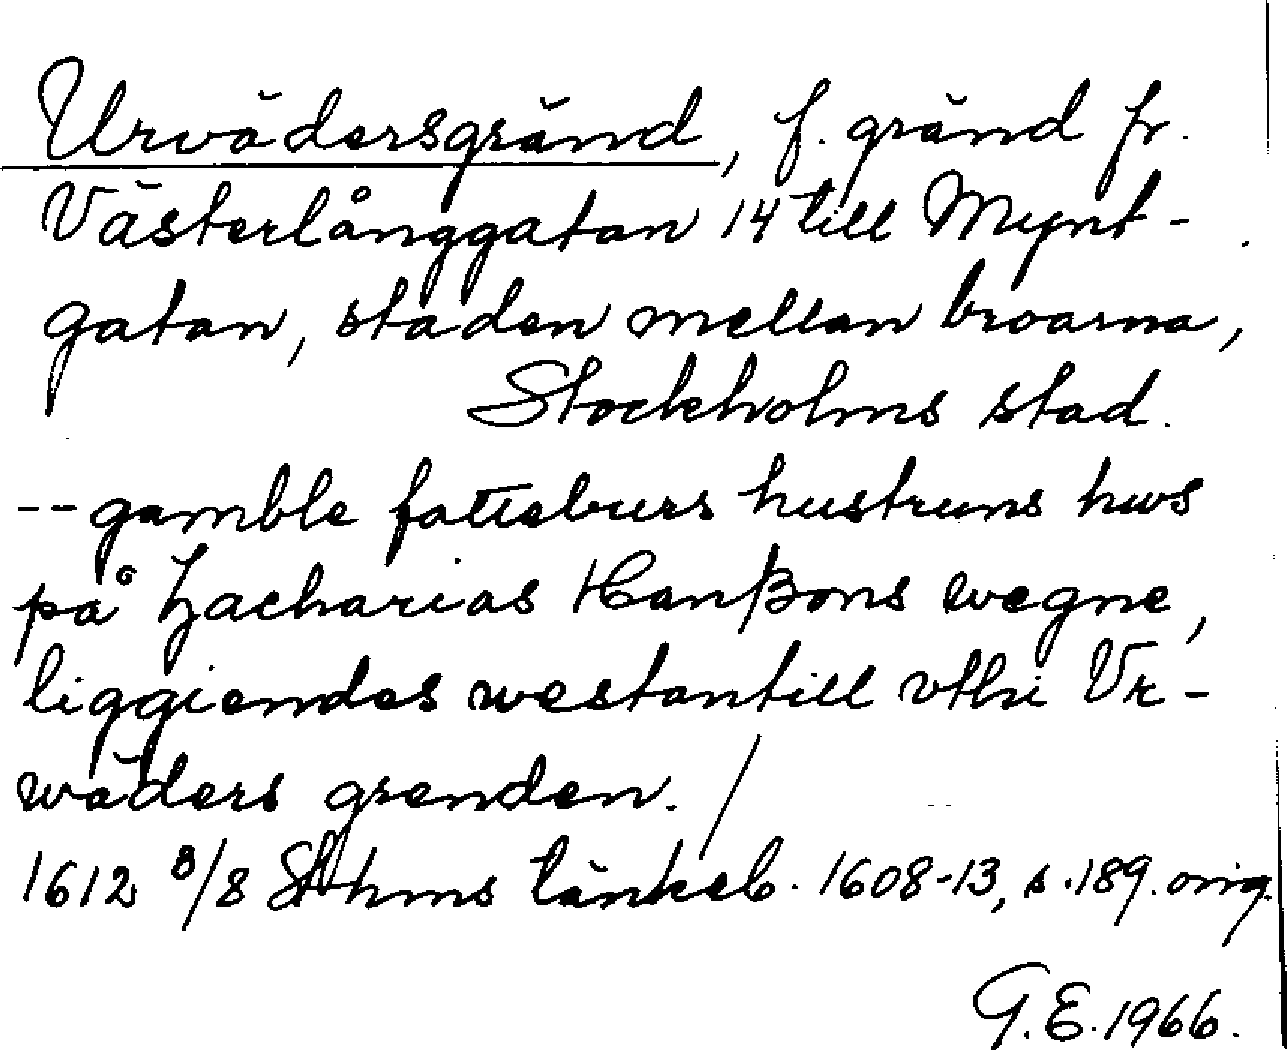 Urvädersgränd, f. gränd fr.
Västerlånggatan 14 till Mynt-
gatan, staden mellan broarna,
Stockholms stad.
-- gamble fatteburs hustruns hws
på Zacharias Hanßons wegne,
liggiendes westantill vthi Vr-
wäders grenden. /
1612 8/8 Sthms tänkeb. 1608-13, s. 189. orig.
G.E. 1966.